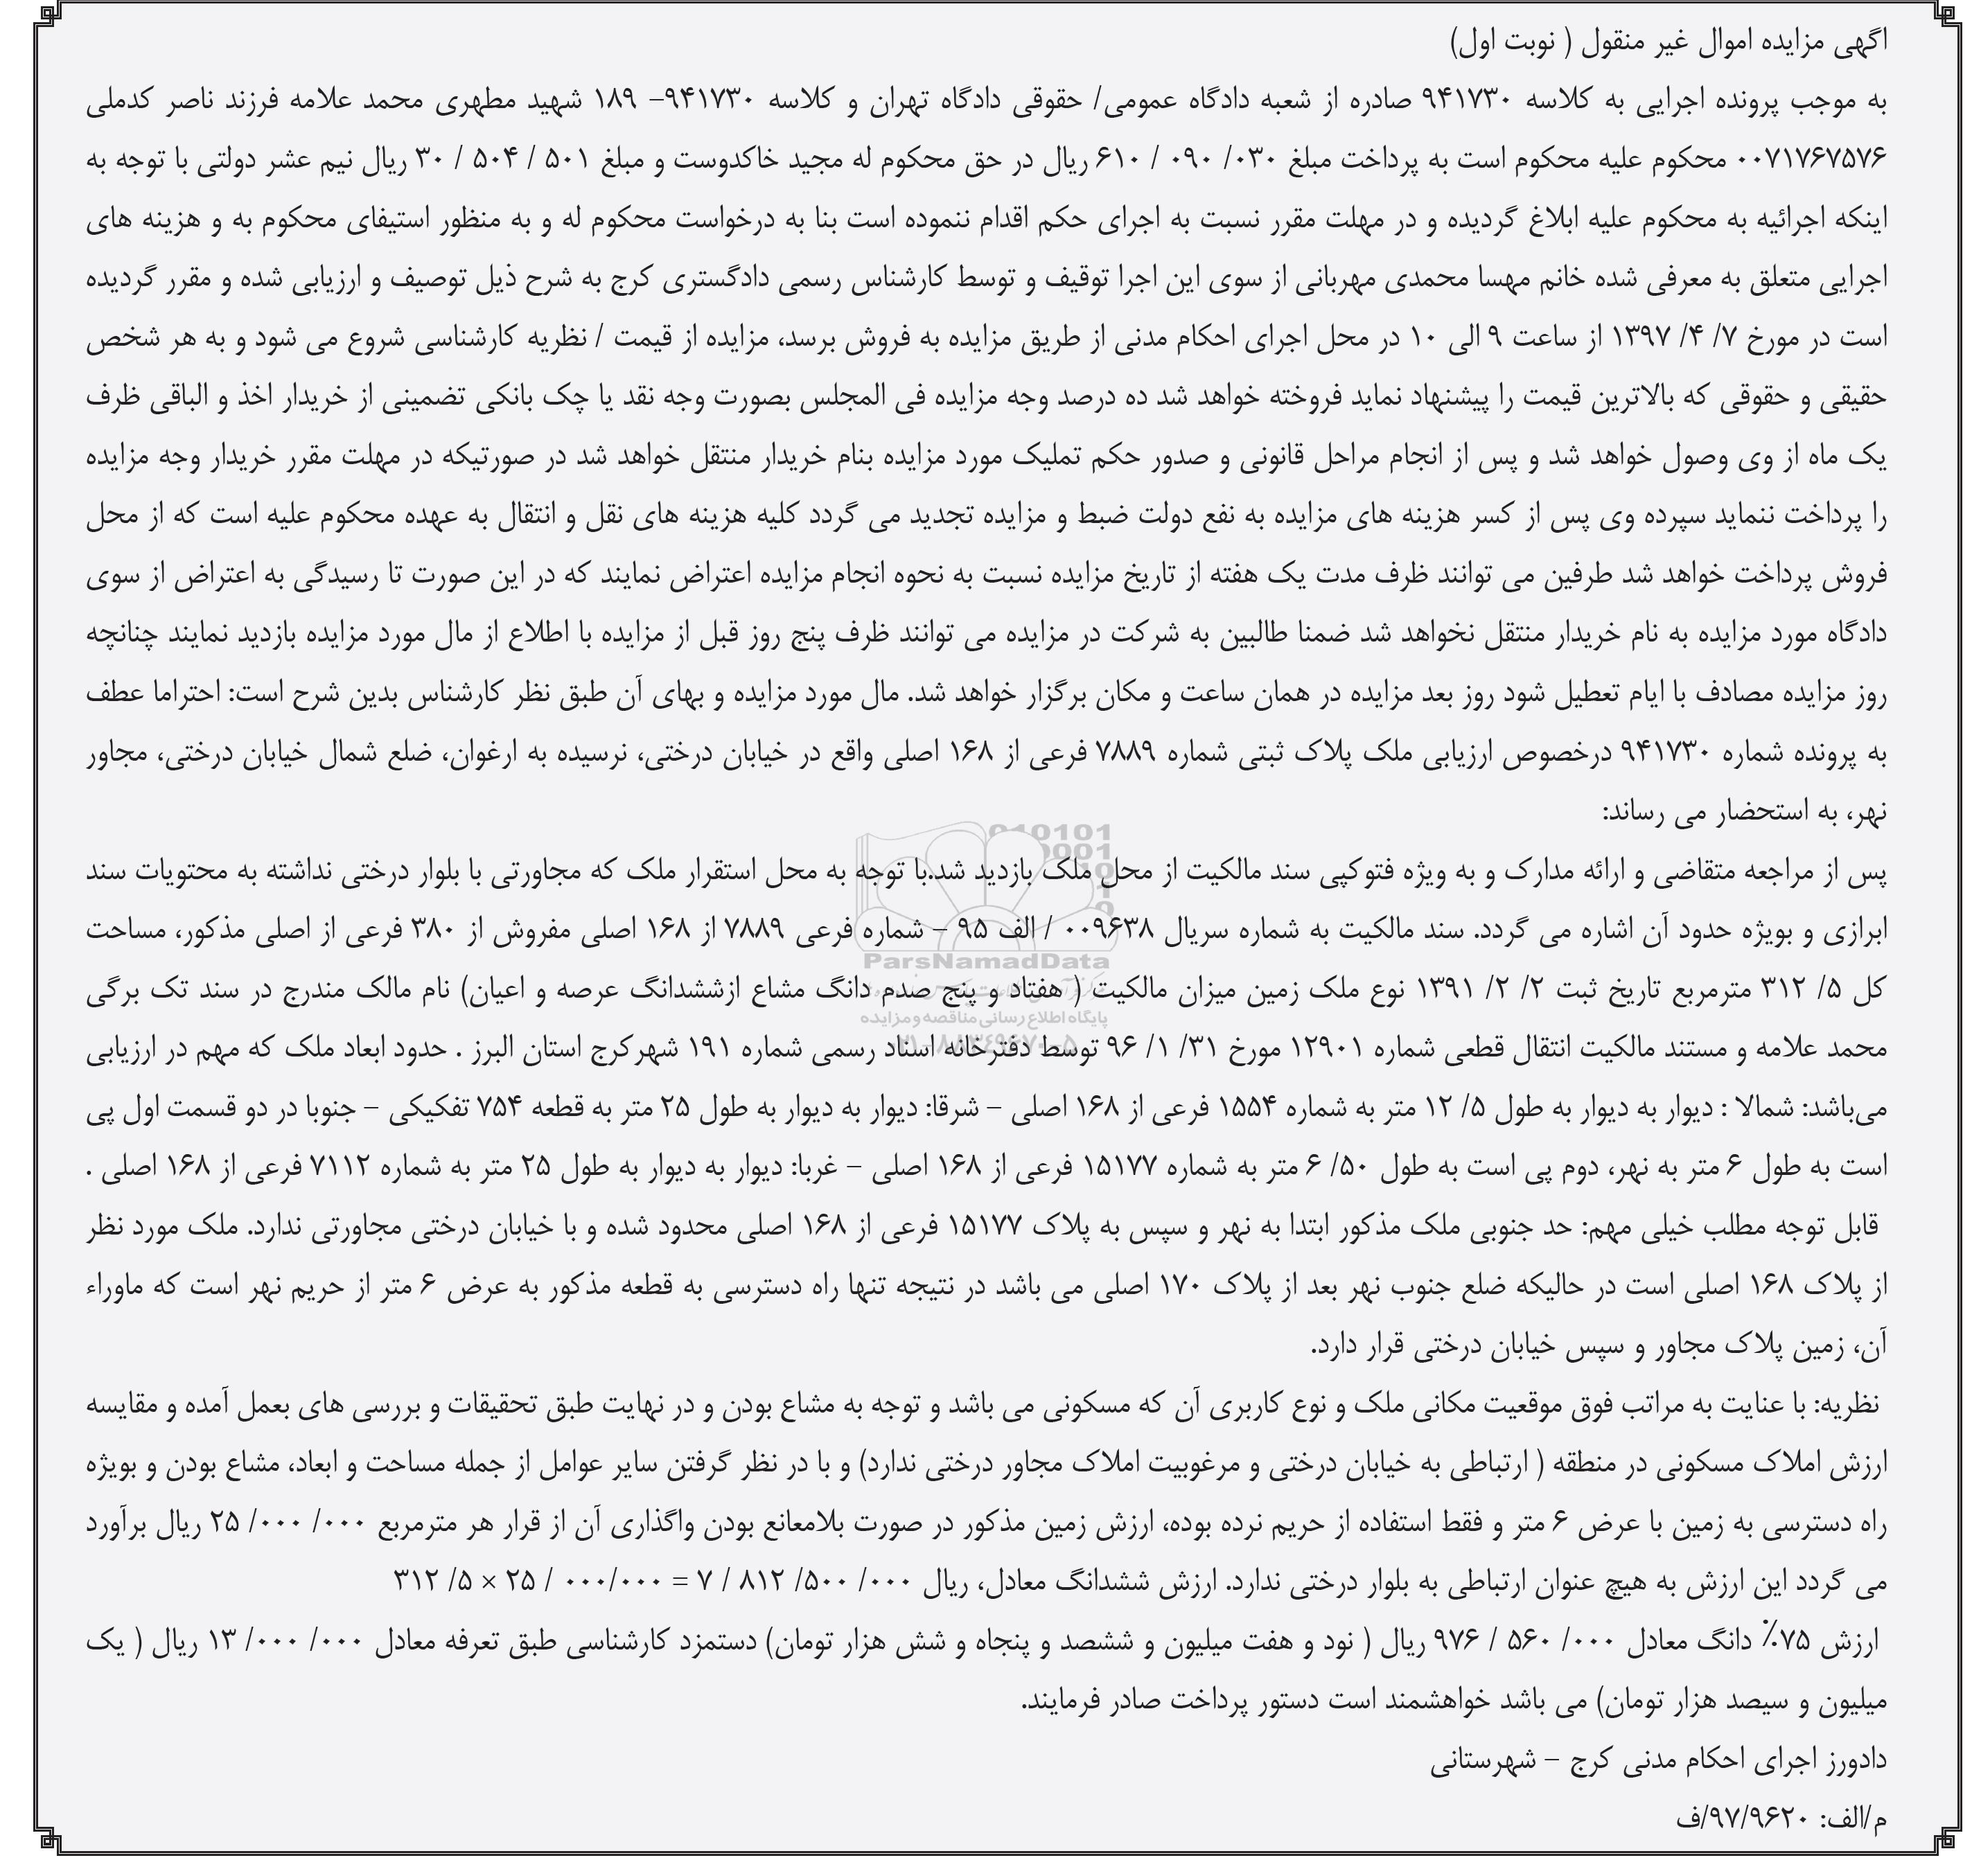 اگهی مزایده اموال غیر منقول ( نوبت اول)
به موجب پرونده اجرایی به کلاسه ۹۴۱۷۳۰ صادره از شعبه دادگاه عمومی/ حقوقی دادگاه تهران و کلاسه ۹۴۱۷۳۰– ۱۸۹ شهید مطهری محمد علامه فرزند ناصر کدملی
۰۰۷۱۷۶۷۵۷۶ محکوم علیه محکوم است به پرداخت مبلغ ۰۳۰/ ۰۹۰ / ۶۱۰ ریال در حق محکوم له مجید خاکدوست و مبلغ ۵۰۱ / ۵۰۴ / ۳۰ ریال نیم عشر دولتی با توجه به
اینکه اجرائیه به محکوم علیه ابلاغ گردیده و در مهلت مقرر نسبت به اجرای حکم اقدام ننموده است بنا به درخواست محکوم له و به منظور استیفای محکوم به و هزینه های
اجرایی متعلق به معرفی شده خانم مهسا محمدی مهربانی از سوی این اجرا توقیف و توسط کارشناس رسمی دادگستری کرج به شرح ذیل توصیف و ارزیابی شده و مقرر گردیده
است در مورخ ۷/ ۴/ ۱۳۹۷ از ساعت ۹ الی ۱۰ در محل اجرای احکام مدنی از طریق مزایده به فروش برسد، مزایده از قیمت / نظریه کارشناسی شروع می شود و به هر شخص
حقیقی و حقوقی که بالاترین قیمت را پیشنهاد نماید فروخته خواهد شد ده درصد وجه مزایده فی المجلس بصورت وجه نقد یا چک بانکی تضمینی از خریدار اخذ و الباقی ظرف
یک ماه از وی وصول خواهد شد و پس از انجام مراحل قانونی و صدور حکم تملیک مورد مزایده بنام خریدار منتقل خواهد شد در صورتیکه در مهلت مقرر خریدار وجه مزایده
را پرداخت ننماید سپرده وی پس از کسر هزینه های مزایده به نفع دولت ضبط و مزایده تجدید می گردد کلیه هزینه های نقل و انتقال به عهده محکوم علیه است که از محل
فروش پرداخت خواهد شد طرفین می توانند ظرف مدت یک هفته از تاریخ مزایده نسبت به نحوه انجام مزایده اعتراض نمایند که در این صورت تا رسیدگی به اعتراض از سوی
دادگاه مورد مزایده به نام خریدار منتقل نخواهد شد ضمنا طالبین به شرکت در مزایده می توانند ظرف پنج روز قبل از مزایده با اطلاع از مال مورد مزایده بازدید نمایند چنانچه
روز مزایده مصادف با ایام تعطیل شود روز بعد مزایده در همان ساعت و مکان برگزار خواهد شد. مال مورد مزایده و بهای آن طبق نظر کارشناس بدین شرح است: احتراما عطف
به پرونده شماره ۹۴۱۷۳۰ درخصوص ارزیابی ملک پلاک ثبتی شماره ۷۸۸۹ فرعی از ۱۶۸ اصلی واقع در خیابان درختی، نرسیده به ارغوان، ضلع شمال خیابان درختی، مجاور
نهر، به استحضار می رساند:
پس از مراجعه متقاضی و ارائه مدارک و به ویژه فتوکپی سند مالکیت از محل ملک بازدید شد.با توجه به محل استقرار ملک که مجاورتی با بلوار درختی نداشته به محتویات سند
ابرازی و بویژه حدود آن اشاره می گردد. سند مالکیت به شماره سریال ۰۰۹۶۳۸ / الف ۹۵ – شماره فرعی ۷۸۸۹ از ۱۶۸ اصلی مفروش از ۳۸۰ فرعی از اصلی مذکور، مساحت
ParsNamadData
کل ۵/ ۳۱۲ مترمربع تاریخ ثبت ۲/ ۲/ ۱۳۹۱ نوع ملک زمین میزان مالکیت ( هفتاد و پنج صدم دانگ مشاع ازششدانگ عرصه و اعیان) نام مالک مندرج در سند تک برگی
پایگاه اطلاع رسانی مناقصه و مزایده
محمد علامه و مستند مالکیت انتقال قطعی شماره ۱۲۹۰۱ مورخ ۳۱/ ۱/ ۹۶ توسط دفترخانه اسناد رسمی شماره ۱۹۱ شهرکرج استان البرز . حدود ابعاد ملک که مهم در ارزیابی
می‌باشد: شمالا : دیوار به دیوار به طول ۵/ ۱۲ متر به شماره ۱۵۵۴ فرعی از ۱۶۸ اصلی – شرقا: دیوار به دیوار به طول ۲۵ متر به قطعه ۷۵۴ تفکیکی – جنوبا در دو قسمت اول پی
است به طول ۶ متر به نهر، دوم پی است به طول ۵۰/ ۶ متر به شماره ۱۵۱۷۷ فرعی از ۱۶۸ اصلی – غربا: دیوار به دیوار به طول ۲۵ متر به شماره ۷۱۱۲ فرعی از ۱۶۸ اصلی .
قابل توجه مطلب خیلی مهم: حد جنوبی ملک مذکور ابتدا به نهر و سپس به پلاک ۱۵۱۷۷ فرعی از ۱۶۸ اصلی محدود شده و با خیابان درختی مجاورتی ندارد. ملک مورد نظر
از پلاک ۱۶۸ اصلی است در حالیکه ضلع جنوب نهر بعد از پلاک ۱۷۰ اصلی می باشد در نتیجه تنها راه دسترسی به قطعه مذکور به عرض ۶ متر از حریم نهر است که ماوراء
آن، زمین پلاک مجاور و سپس خیابان درختی قرار دارد.
نظریه: با عنایت به مراتب فوق موقعیت مکانی ملک و نوع کاربری آن که مسکونی می باشد و توجه به مشاع بودن و در نهایت طبق تحقیقات و بررسی های بعمل آمده و مقایسه
ارزش املاک مسکونی در منطقه ( ارتباطی به خیابان درختی و مرغوبیت املاک مجاور درختی ندارد) و با در نظر گرفتن سایر عوامل از جمله مساحت و ابعاد، مشاع بودن و بویژه
راه دسترسی به زمین با عرض ۶ متر و فقط استفاده از حریم نرده بوده، ارزش زمین مذکور در صورت بلامعانع بودن واگذاری آن از قرار هر مترمربع ۰۰۰/ ۰۰۰/ ۲۵ ریال برآورد
می گردد این ارزش به هیچ عنوان ارتباطی به بلوار درختی ندارد. ارزش ششدانگ معادل، ریال ۰۰۰/ ۵۰۰/ ۸۱۲ / ۷ = ۰۰۰/۰۰۰ / ۲۵ × ۵/ ۳۱۲
ارزش ۷۵٪ دانگ معادل ۰۰۰/ ۵۶۰ / ۹۷۶ ریال ( نود و هفت میلیون و ششصد و پنجاه و شش هزار تومان) دستمزد کارشناسی طبق تعرفه معادل ۰۰۰/ ۰۰۰/ ۱۳ ریال ( یک
میلیون و سیصد هزار تومان) می باشد خواهشمند است دستور پرداخت صادر فرمایند.
دادورز اجرای احکام مدنی کرج – شهرستانی
م/الف: ۹۷/۹۶۲۰/ف